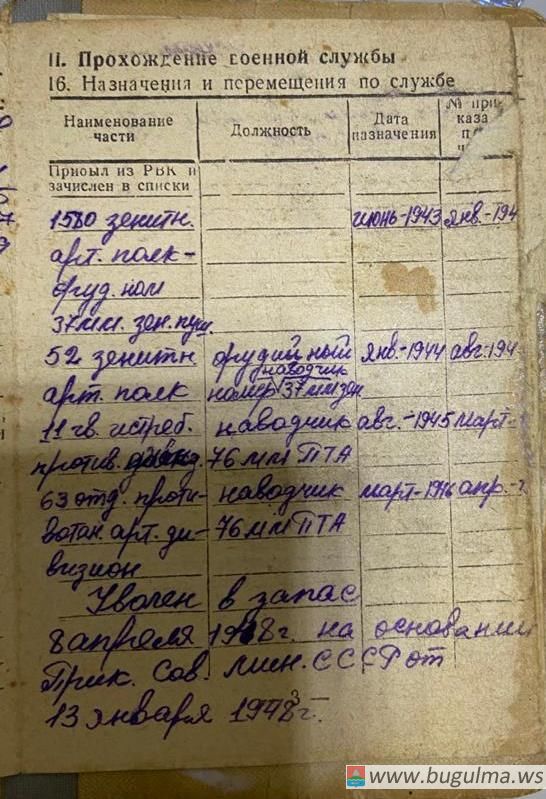 II. Прохождение военной службы
16. Назначения и перемещения по службе
Наименование части
Должность
Дата назначения
№ при-
каза
Прибыл из РВК и
зачислен в списки
1580 зенитн. июнь-1943 янв.-194
арт. полк-
оруд. ном
37мм. зен. пуш.
52 зенитн. орудийный янв.-1944 авг.-194
наводчик
арт. полк номер 37 мм зен.
11 гв. истреб. наводчик авг.-1945 март-
против. 76 мм ПТА
63 отд. проти- наводчик март-1946 апр.-
вотан. арт. ди- 76 мм ПТА
визион
Уволен в запас
8 апреля 1948 г. на основании
Прик. Сов. Мин. СССР от
13 января 1948 г.
www.bugulma.ws